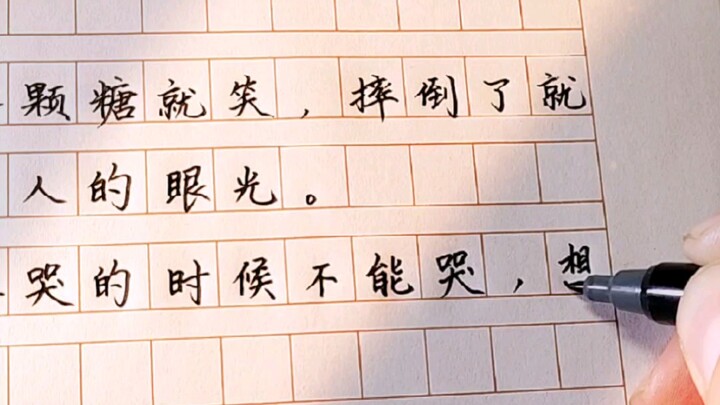 颗糖就笑，摔倒了就
人的眼光。
哭的时候不能哭，想